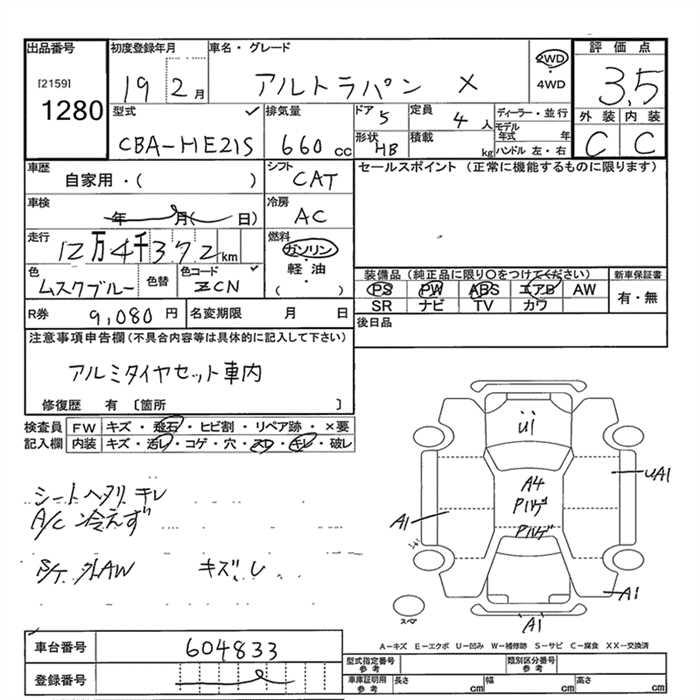 出品番号 初度登録年月 車名・グレード 評価点
[2159] 1280 19 2月 アルトラパン X 2WD 4WD 3.5
型式 排気量 ドア 定員 ディーラー・並行 外装 内装
CBA-HE21S 660cc 5 4人 モデル年式 年 C C
形状 HB 積載 kg ハンドル 左・右
車歴 シフト セールスポイント (正常に機能するものに限ります)
自家用・( ) CAT
車検 冷房
年 月( 日) AC
走行 燃料
12万4千372km ガソリン・軽油・( )
色 色替 色コード 装備品 (純正品に限り○をつけてください) 新車保証書
ムスクブルー ZCN PS PW ABS エアB AW 有・無
SR ナビ TV カワ
R券 9,080円 名変期限 月 日 後日品
注意事項申告欄 (不具合内容等は具体的に記入して下さい)
アルミタイヤセット車内
修復歴 有 〔箇所 〕
検査員 FW キズ・飛石・ヒビ割・リペア跡・×要
記入欄 内装 キズ・汚レ・コゲ・穴・スレ・キレ・破レ
U1
シートヘタリ キレ
A/C 冷えず
A4
UA1
A1
キズ.レ
A1
スペア
A1
A-キズ E-エクボ U-凹み W-補修跡 S-サビ C-腐食 XX-交換済
車台番号 604833
型式指定番号 参考 類別区分番号 参考
登録番号
車庫証明用 参考 長さ cm 幅 cm 高さ cm